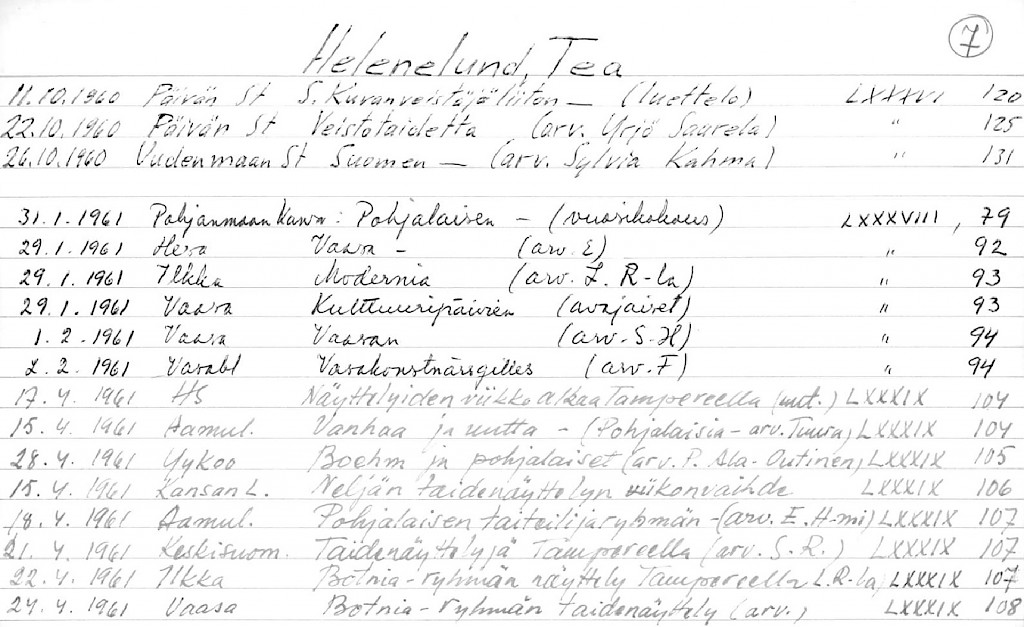 7
Helenelund, Tea
11.10.1960 Päivän St S. Kuvanveistäjäliiton — (luettelo) LXXXVI 120
22.10.1960 Päivän St Veistotaidetta (arv. Yrjö Saarela) " 125
26.10.1960 Uudenmaan St Suomen — (arv. Sylvia Kahma) " 131
31.1.1961 Pohjanmaan Kansa: Pohjalaisen - (vuosikokous) LXXXVIII, 79
29.1.1961 Vaasa - (arv. E) " 92
29.1.1961 Ilkka Modernia (arv. L. R-la) " 93
29.1.1961 Vaasa Kulttuuripäivien (avajaiset) " 93
1.2.1961 Vaasa Vaasan (arv. S-H) " 94
2.2.1961 Vasabl Vasakonstnärsgilles (arv. F) " 94
17.4.1961 HS Näyttelyiden viikko alkaa Tampereella (uut.) LXXXIX 104
15.4.1961 Aamul. Vanhaa ja uutta - (Pohjalaisia - arv. Tuura) LXXXIX 104
28.4.1961 Uykoo Boehm ja pohjalaiset (arv. P. Ala-Outinen) LXXXIX 105
15.4.1961 Kansan L. Neljän taidenäyttelyn viikonvaihde LXXXIX 106
18.4.1961 Aamul. Pohjalaisen taiteilijaryhmän - (arv. E. H-mi) LXXXIX 107
21.4.1961 Keskisuom. Taidenäyttelyjä Tampereella (arv. S. R.) LXXXIX 107
22.4.1961 Ilkka Botnia-ryhmän näyttely Tampereella L. R-la) LXXXIX 107
24.4.1961 Vaasa Botnia-ryhmän taidenäyttely (arv.) LXXXIX 108